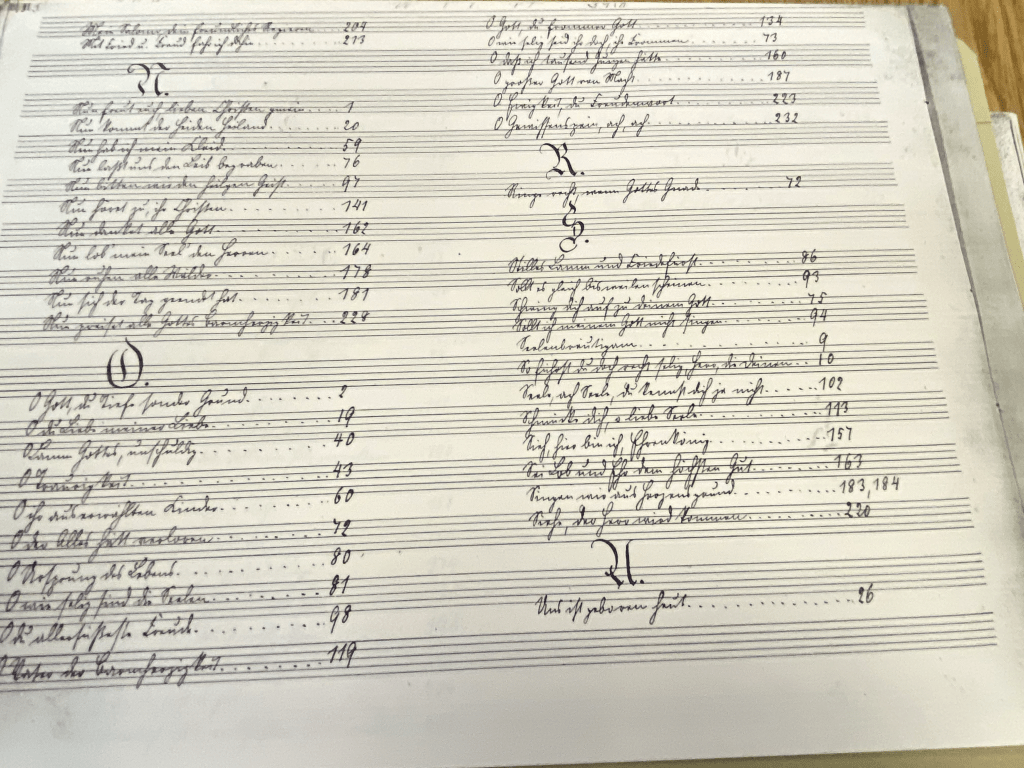 Mein Salomo, dein freundliches Regieren 204
Mit Fried u. Freud fahr ich dahin 213
N.
Nun freut euch lieben Christen gmein.... 1
Nun kommt der Heiden Heiland........ 20
Nun hab ich mein Kleid............ 59
Nun laßt uns den Leib begraben...... 76
Nun bitten wir den heilgen Geist...... 97
Nun höret zu, ihr Christen........... 141
Nun danket alle Gott............. 162
Nun lob mein Seel den Herren........ 164
Nun ruhen alle Wälder............ 178
Nun sich der Tag geendet hat......... 181
Nun preiset alle Gottes Barmherzigkeit... 228
O.
O Gott, du Tiefe sonder Grund......... 2
O du Liebe meiner Liebe........... 19
O Lamm Gottes, unschuldig........ 40
O Traurigkeit............... 43
O ihr auserwählten Kinder......... 60
O der Alles hätt verloren.......... 72
O Ursprung des Lebens........... 80
O wie selig sind die Seelen......... 81
O du allersüßeste Freude.......... 98
O Vater der Barmherzigkeit......... 119
O Gott, du frommer Gott........... 134
O wie selig seid ihr doch, ihr Frommen..... 73
O daß ich tausend Zungen hätte....... 160
O großer Gott von Macht........... 187
O Ewigkeit, du Freudenwort......... 223
O Gewissenspein, ach, ach.......... 232
R.
Ringe recht, wenn Gottes Gnade....... 72
S.
Stilles Lamm und Friedefürst......... 86
Sollt es gleich bisweilen scheinen...... 93
Schwing dich auf zu deinem Gott....... 75
Sollt ich meinem Gott nicht singen...... 94
Seelenbräutigam............... 9
So führst du doch recht selig, Herr, die Deinen.. 10
Seele, ach Seele, du kennst dich ja nicht..... 102
Schmücke dich, o liebe Seele......... 113
Sieh, hier bin ich, Ehrenkönig........ 157
Sei Lob und Ehr dem höchsten Gut...... 163
Singen wir aus Herzensgrund........ 183, 184
Siehe, der Herr wird kommen......... 220
U.
Uns ist geboren heut............. 26